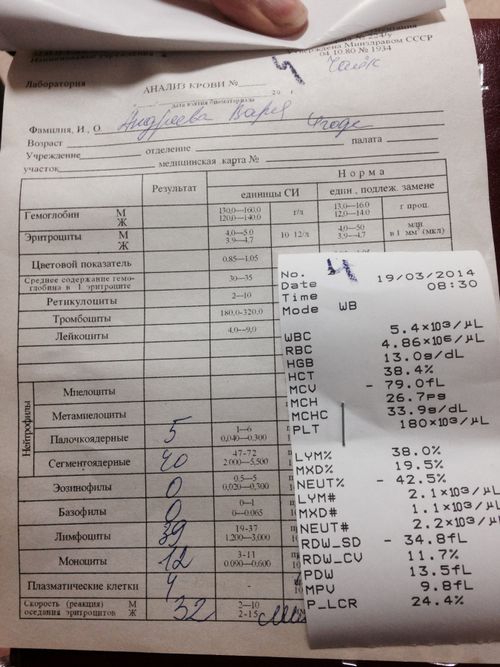 04.10.80 № 1934
Лаборатория
АНАЛИЗ КРОВИ №
4
Фамилия, И., О. Андреева Варя
Возраст 4 года
Учреждение отделение палата
участок медицинская карта №
Результат
Норма
единицы СИ
един., подлеж. замене
Гемоглобин М 130,0—160,0 г/л 13.0—16.0 г проц.
Ж 120.0—140.0 12.0—14.0
Эритроциты М 4.0—5.0 10 12/л 4.0—50 млн
Ж 3.9—4.7 3.9—4.7 в 1 мм³ (мкл)
Цветовой показатель 0.85—1.05
Среднее содержание гемо-
глобина в 1 эритроците 30—35
Ретикулоциты 2—10
Тромбоциты 180,0-320,0
Лейкоциты 4,0—9,0
Нейтрофилы
Миелоциты
Метамиелоциты
Палочкоядерные 5 1—6
0,040—0,300
Сегментоядерные 40 47-72
2 000—5,500
Эозинофилы 0 0,5—5
0,020—0,300
Базофилы 0 0—1
0—0,065
Лимфоциты 39 19-37
1,200—3,000
Моноциты 12 3-11
0,090—0,600
Плазматические клетки 4 -
Скорость (реакция) М 2—10
оседания эритроцитов Ж 32 2-15
No. 4
Date 19/03/2014
Time 08:30
Mode WB
WBC 5.4×10³/µL
RBC 4.86×10⁶/µL
HGB 13.0g/dL
HCT 38.4%
MCV - 79.0fL
MCH 26.7pg
MCHC 33.9g/dL
PLT 180×10³/µL
LYM% 38.0%
MXD% 19.5%
NEUT% - 42.5%
LYM# 2.1×10³/µL
MXD# 1.1×10³/µL
NEUT# 2.2×10³/µL
RDW_SD - 34.8fL
RDW_CV 11.7%
PDW 13.5fL
MPV 9.8fL
P_LCR 24.4%